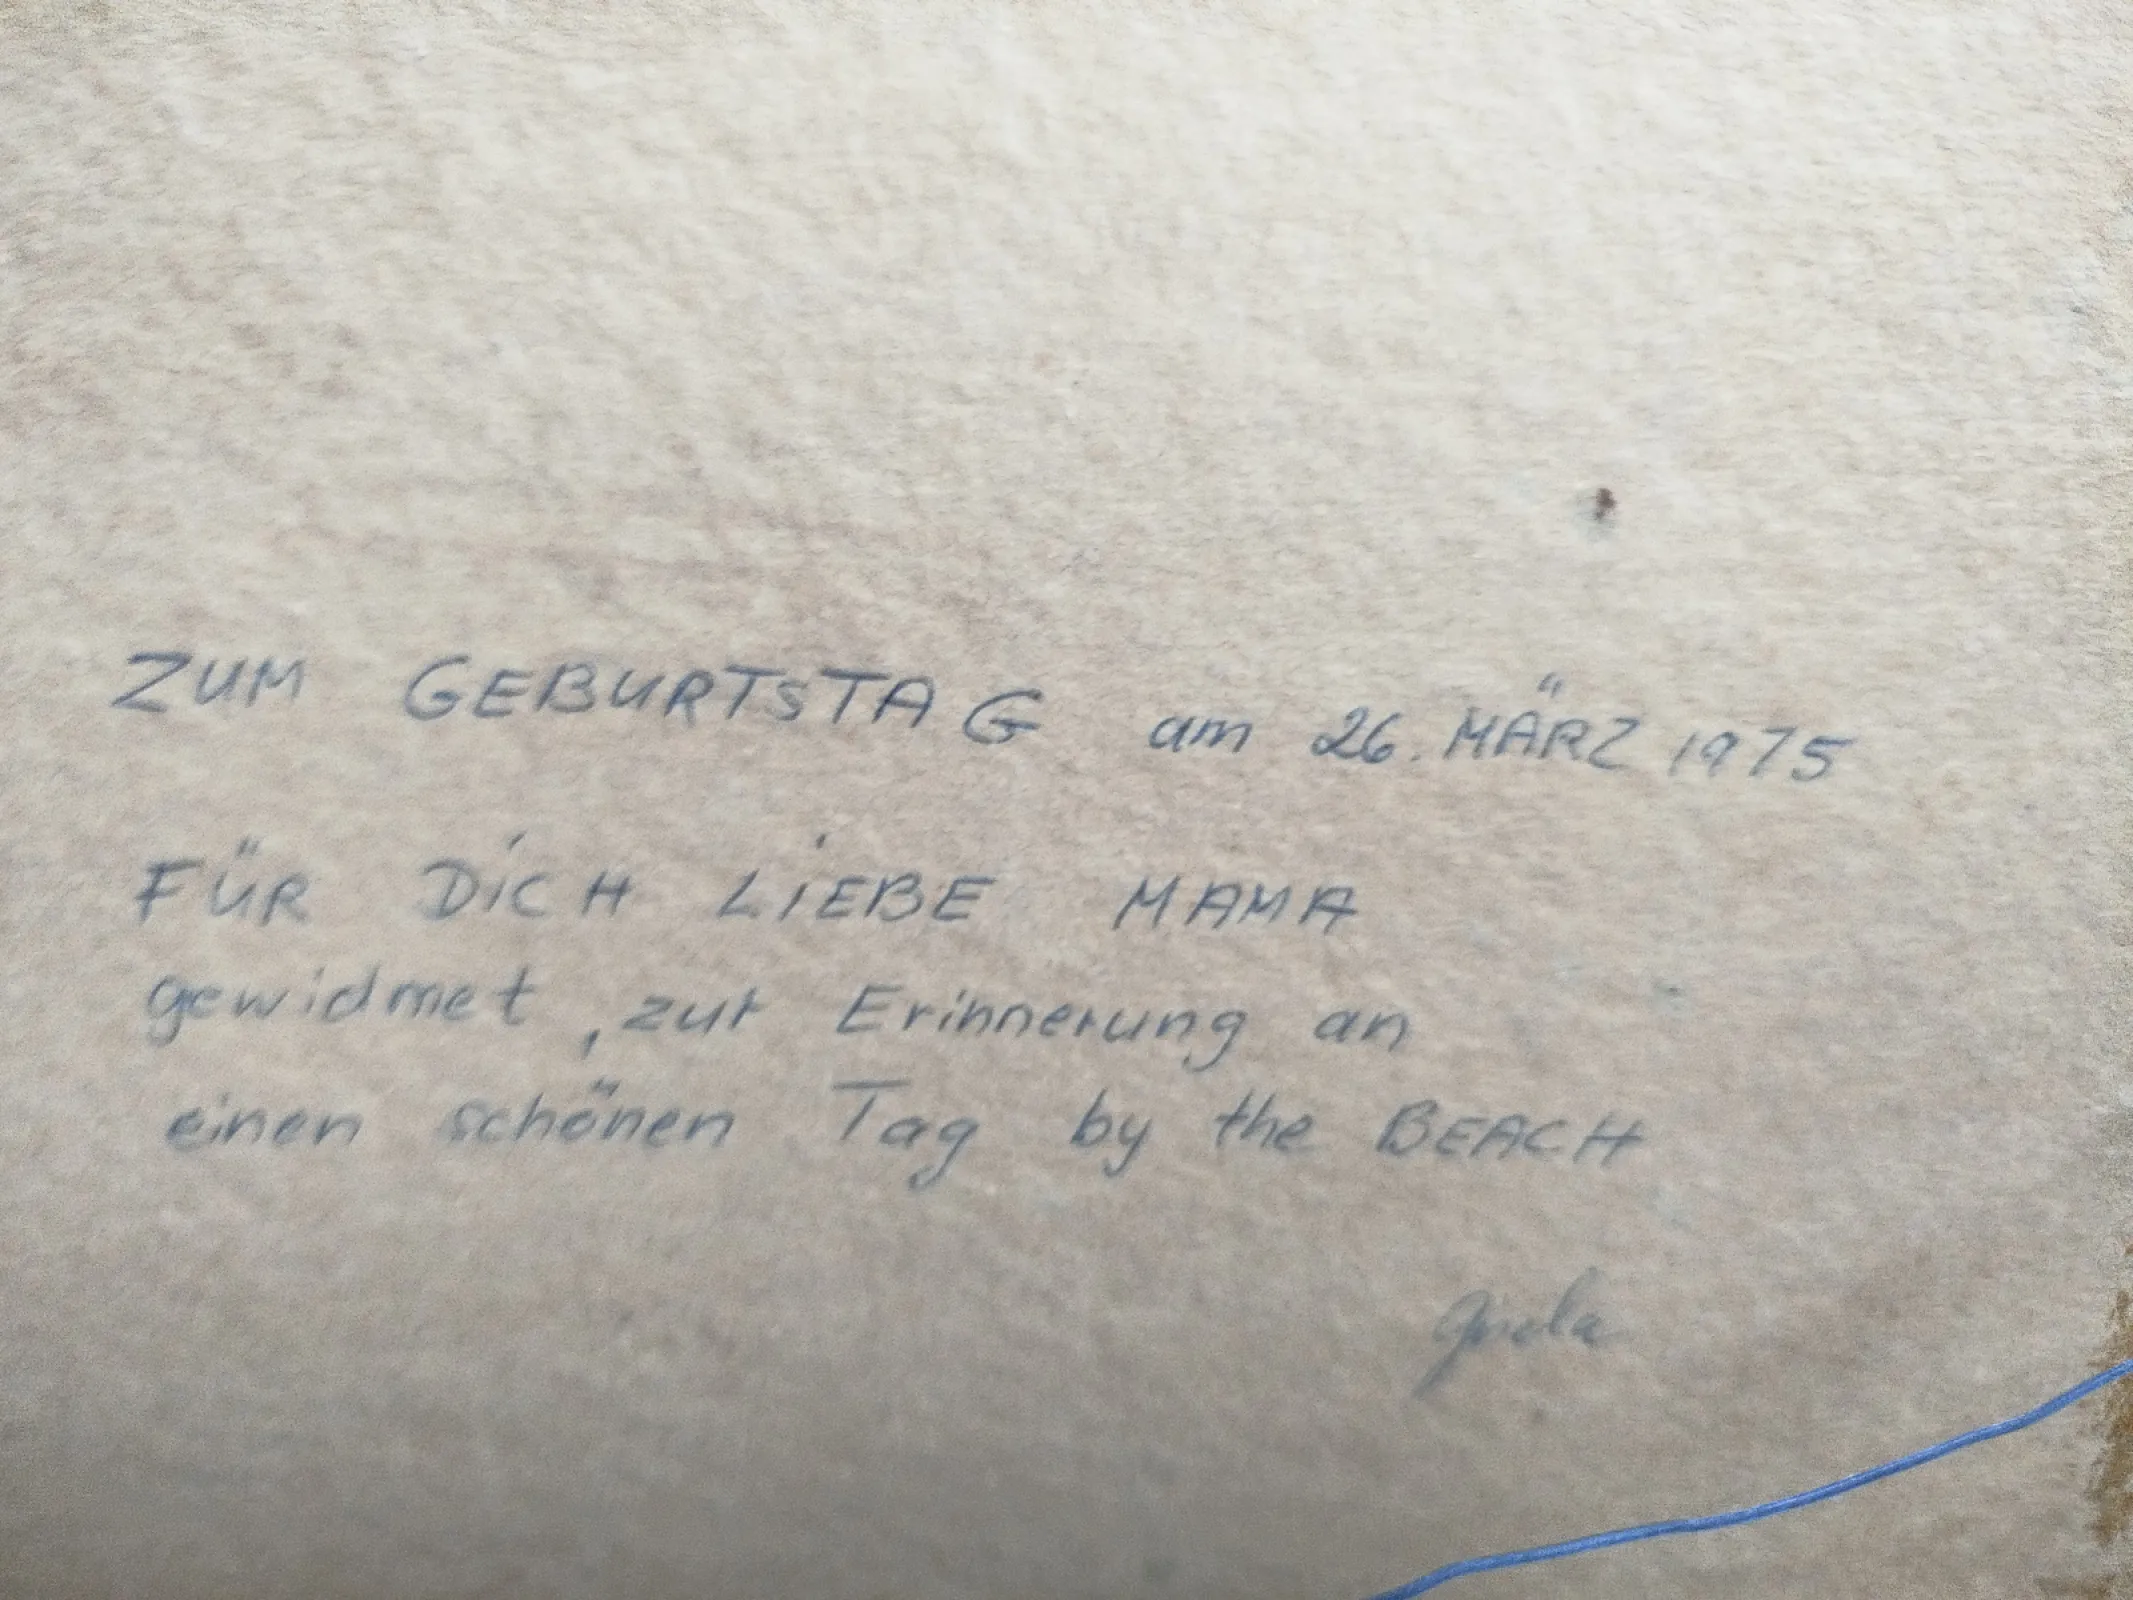 ZUM GEBURTSTAG am 26. MÄRZ 1975
FÜR DiCH LiEBE MAMA
gewidmet, zur Erinnerung an
einen schönen Tag by the BEACH